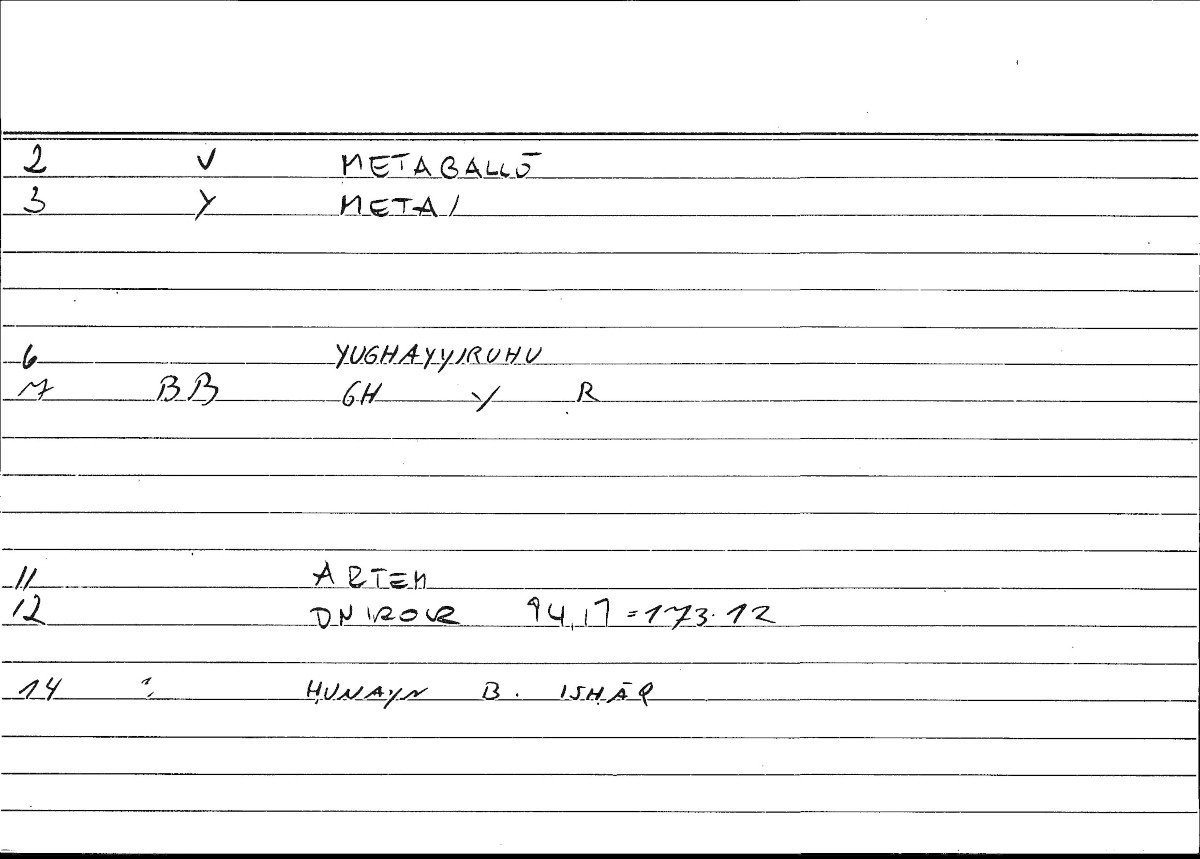 2 V METABALLŌ
3 Y METAI
6 YUGHAYYIRUHU
7 BB GH Y R
11 ARTEM
12 94,17 = 173.12
14 ḤUNAYN B. ISḤĀQ